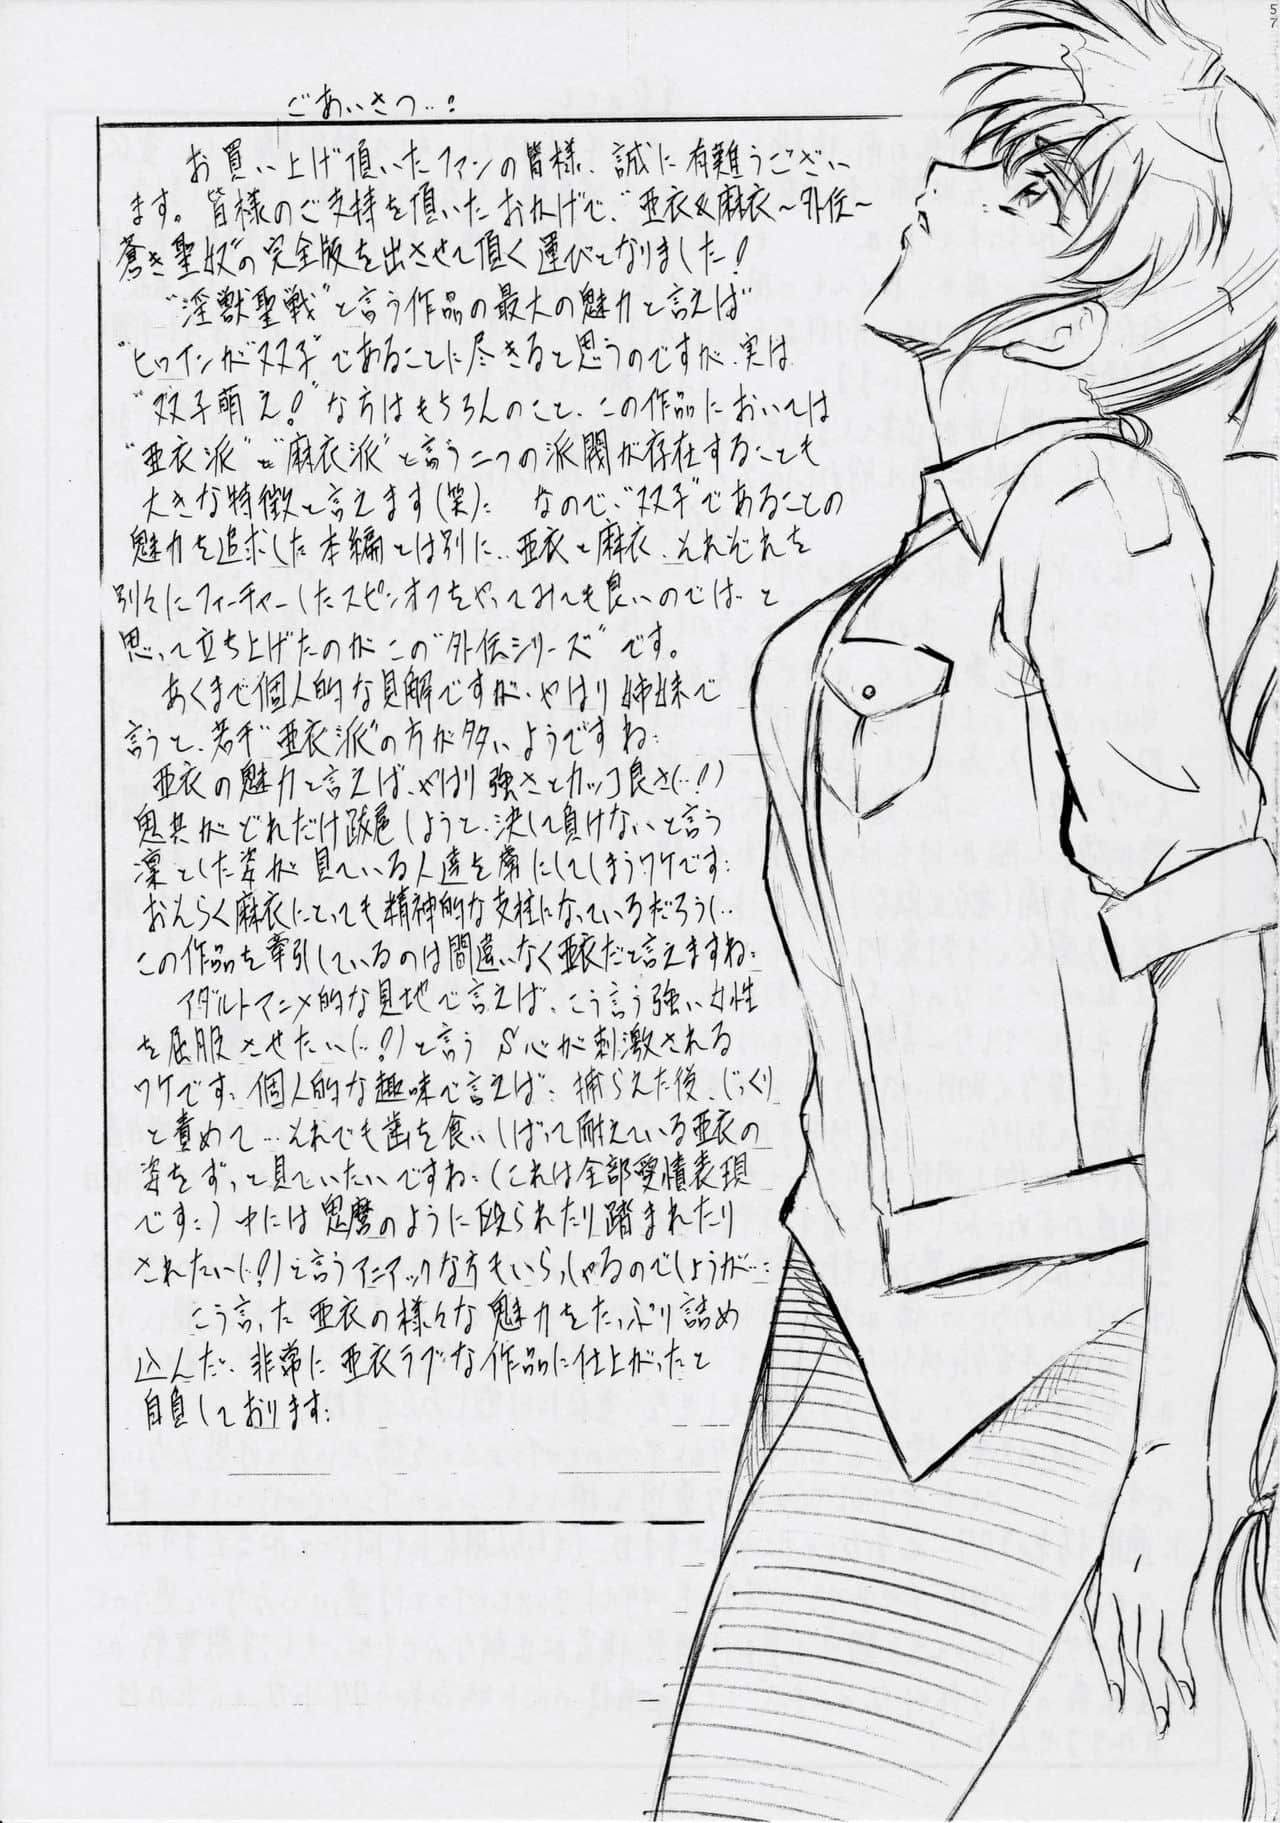 57
ごあいさつ…!
お買い上げ頂いたファンの皆様、誠に有難うござい
ます。皆様のご支持を頂いたおかげで、"亜衣&麻衣～外伝～
蒼き聖奴"の完全版を出させて頂く運びとなりました!
"淫獣聖戦"と言う作品の最大の魅力と言えば
"ヒロインが双子"であることに尽きると思うのですが、実は
"双子萌え!"な方はもちろんのこと、この作品においては
"亜衣派"と"麻衣派"と言う二つの派閥が存在することも
大きな特徴と言えます(笑)… なので、"双子"であることの
魅力を追求した本編とは別に…亜衣と麻衣、それぞれを
別々にフィーチャーしたスピンオフをやってみても良いのでは…と
思って立ち上げたのがこの"外伝シリーズ"です。
あくまで個人的な見解ですが、やはり姉妹で
言うと、若干"亜衣派"の方が多いようですね…
亜衣の魅力と言えば、やはり強さとカッコ良さ(…!)
鬼共がどれだけ跋扈しようと、決して負けないと言う
凛とした姿が見ている人達を虜にしてしまうワケです…
おそらく麻衣にとっても精神的な支柱になっているだろうし…
この作品を牽引しているのは間違いなく亜衣だと言えますね…
アダルトアニメ的な見地で言えば、こう言う強い女性
を屈服させたい(…!)と言うS心が刺激される
ワケです…個人的な趣味で言えば…捕らえた後、じっくり
と責めて…それでも歯を食いしばって耐えている亜衣の
姿をずっと見ていたいですね…(これは全部愛情表現
です…)中には鬼麿のように殴られたり踏まれたり
されたい(…!)と言うマニアックな方もいらっしゃるのでしょうが…
こう言った亜衣の様々な魅力をたっぷり詰め
込んだ、非常に亜衣ラブな作品に仕上がったと
自負しております…